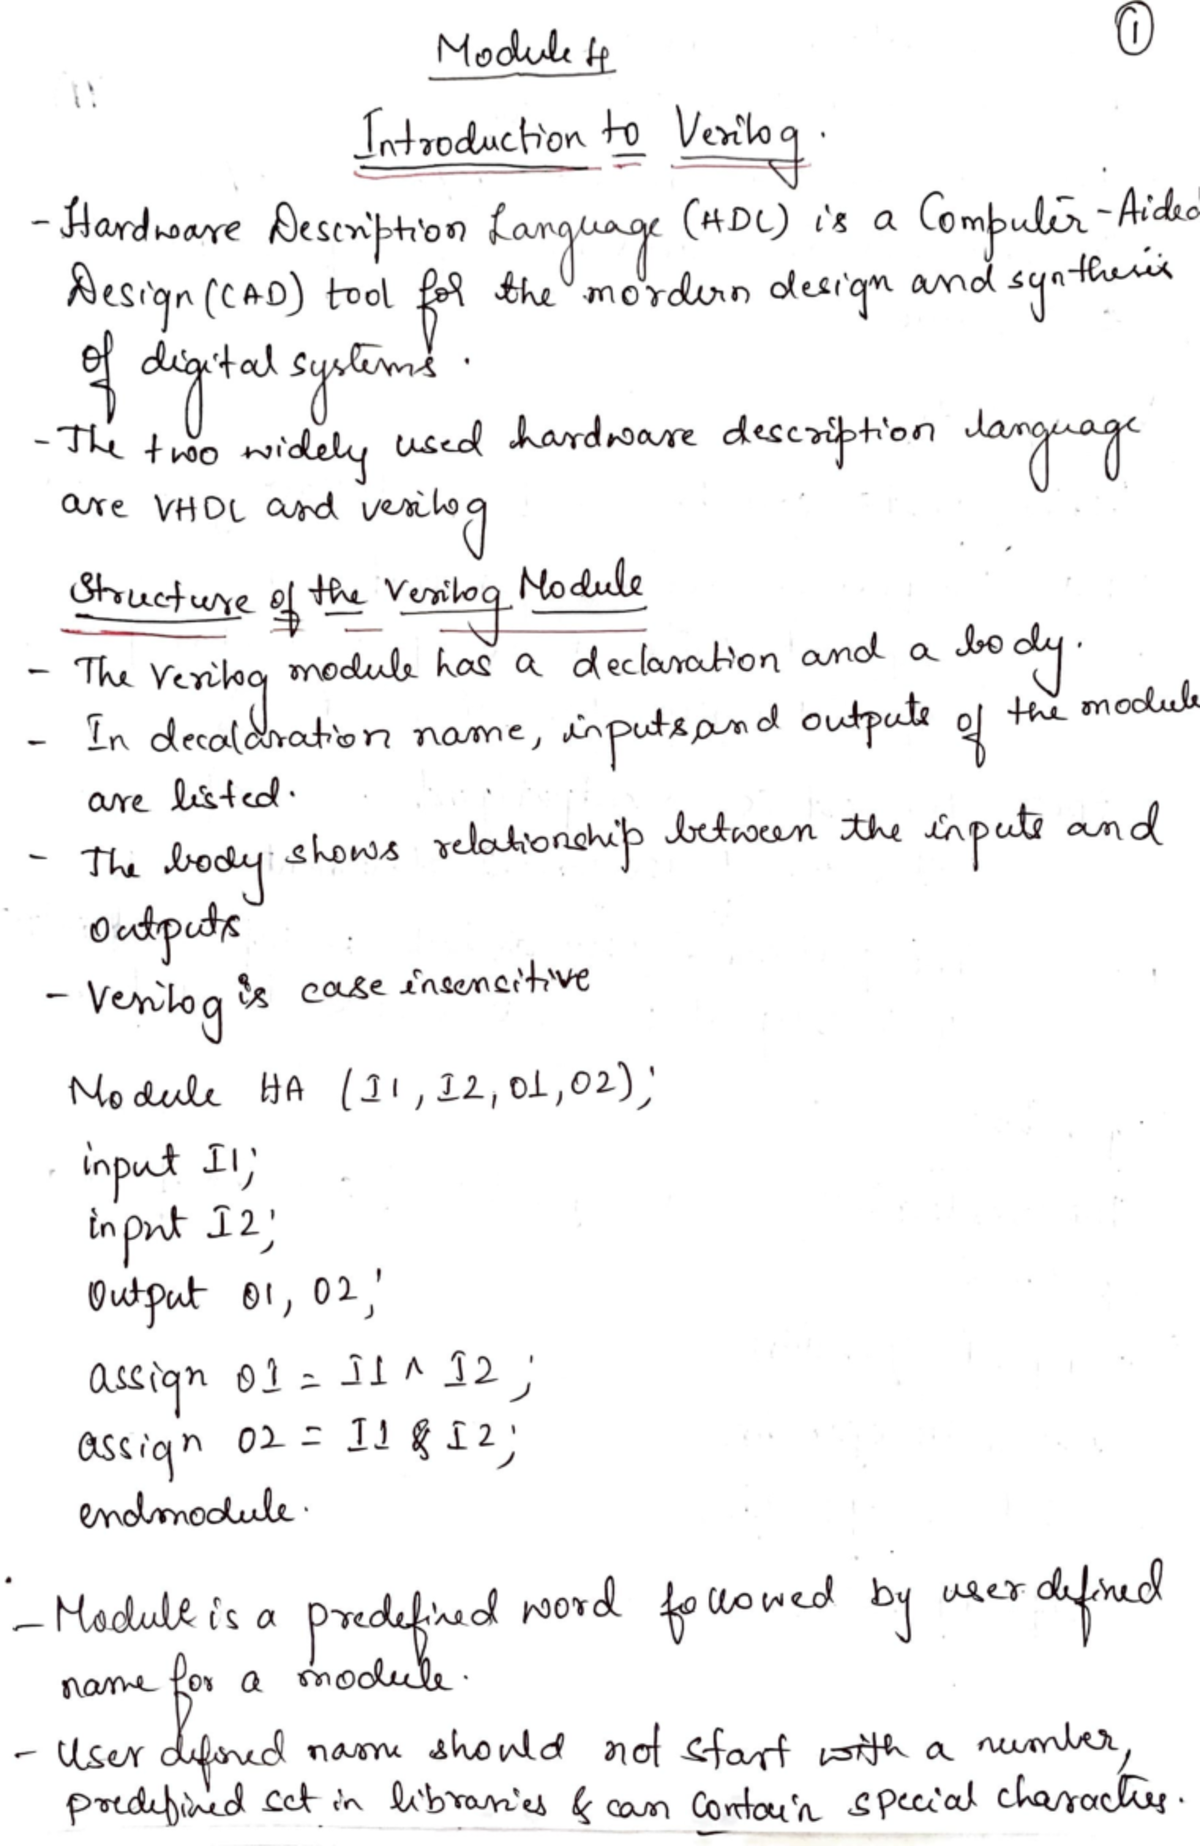 1
Module 4
Introduction to Verilog.
- Hardware Description Language (HDL) is a Computer-Aided
Design (CAD) tool for the mordern design and synthesis
of digital systems.
- The two widely used hardware description language
are VHDL and verilog
Structure of the Verilog Module
- The Verilog module has a declaration and a body.
- In decaldaration name, inputs and outputs of the module
are listed.
- The body shows relationship between the inputs and
outputs
- Verilog is case insensitive
Module HA (I1, I2, O1, O2);
input I1;
input I2;
Output O1, O2;
assign O1 = I1 ^ I2;
assign O2 = I1 & I2;
endmodule.
- Module is a predefined word followed by user defined
name for a module.
- User defined name should not start with a number,
predefined set in libraries & can contain special characters.